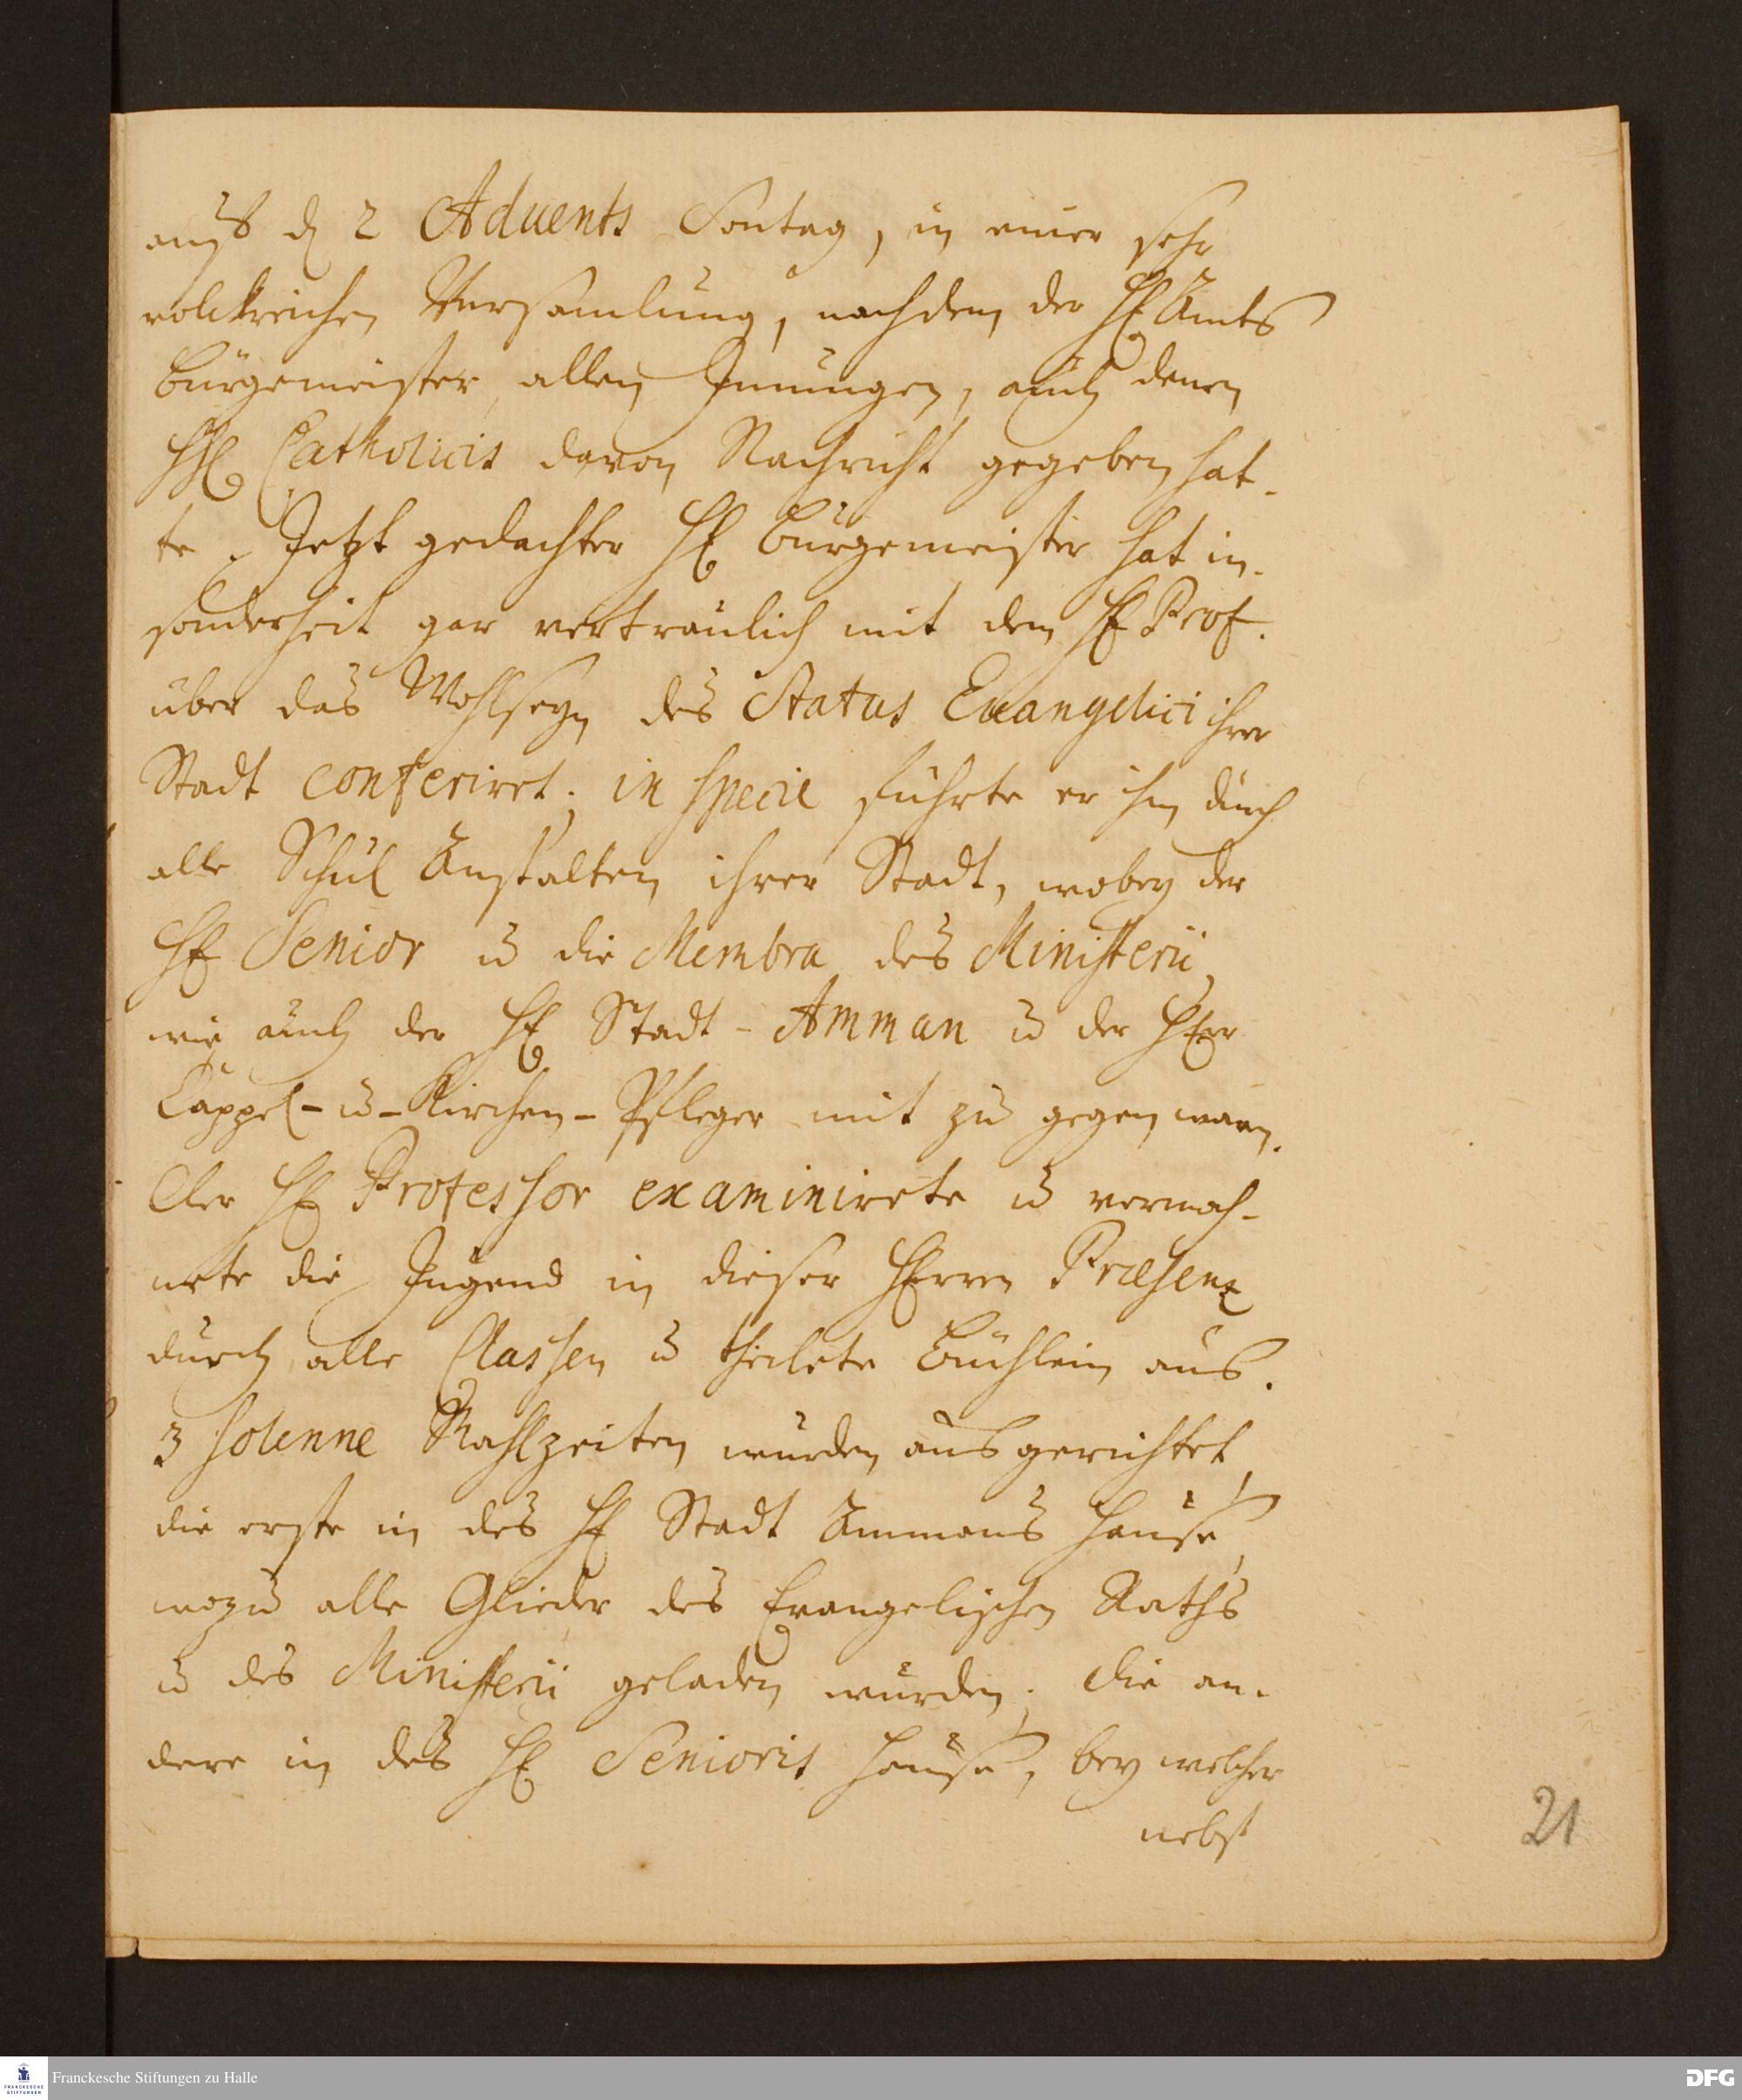 auß d 2 Advents Sontag, in einer sehr
volckreichen Versamlung, nachdem der H Amts
bürgemeister allen Innungen, auch denen
HH Catholicis davon Nachricht gegeben hat-
te. Jetzt gedachter H bürgemeister hat in-
sonderheit gar vertraulich mit dem H Prof.
über das Wohlseyn des Status Evangelici ihrer
Stadt conferiret; in specie führte er ihn durch
alle Schul Anstalten ihrer Stadt, wobey der
H Senior u die Membra des Ministerii,
wie auch der H Stadt-Amman u der Herr
Cappel-u-Kirchen-Pfleger mit zu gegen waren.
Der H Professor examinirete u vermah-
nete die Jugend in dieser Herren Præsenz
durch alle Classen u theilete Büchlein aus.
3 solenne Mahlzeiten wurden ausgerichtet,
die erste in des H Stadt Ammans Hause,
wozu alle Glieder des Evangelischen Raths
u des Ministerii geladen wurden; die an-
dere in des H Senioris Hause, bey welcher
nebst
21
Franckesche Stiftungen zu Halle
FRANCKESCHE
STIFTUNGEN
DFG